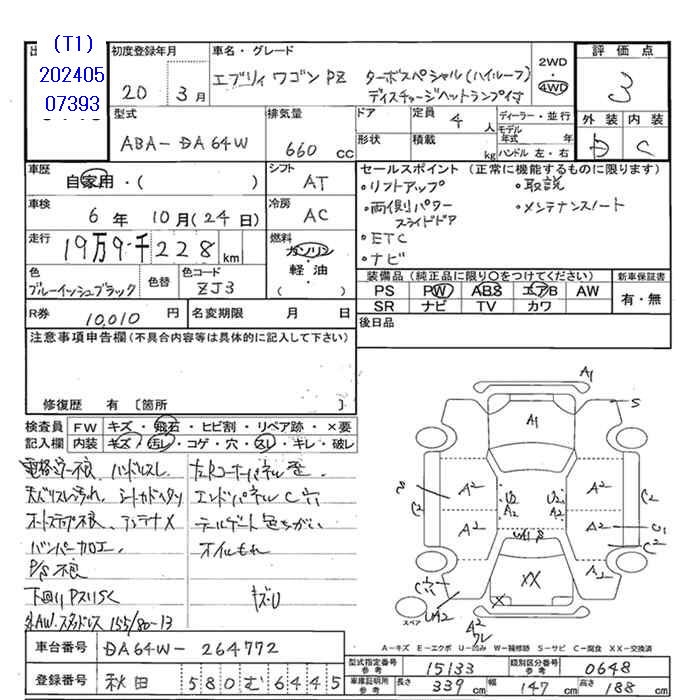 (T1)
202405
07393
初度登録年月
20 3月
車名・グレード
エブリィワゴン PZ ターボスペシャル(ハイルーフ)
ディスチャージヘッドランプ付
2WD
・
4WD
評価点
3
外装 内装
D C
型式
ABA-DA64W
排気量
660 CC
ドア
形状
定員 4 人
積載 kg
ディーラー・並行
モデル年式 年
ハンドル 左・右
車歴
自家用・( )
シフト
AT
車検
6年 10月(24日)
冷房
AC
走行
19万9千228km
燃料
ガソリン
軽油
( )
色
ブルーイッシュブラック
色替
色コード
ZJ3
R券 10,010 円
名変期限 月 日
セールスポイント (正常に機能するものに限ります)
・リフトアップ
・取説
・両側パワースライドドア
・メンテナンスノート
・ETC
・ナビ
装備品(純正品に限り○をつけてください)
PS PW ABS エアB AW
SR ナビ TV カワ
新車保証書
有・無
後日品
注意事項申告欄(不具合内容等は具体的に記入して下さい)
修復歴 有 〔箇所 〕
検査員記入欄
FW キズ・飛石・ヒビ割・リペア跡・×要
内装 キズ・汚レ・コゲ・穴・スレ・キレ・破レ
ハンドルスレ
天バリスレ汚れ、シートカドヘタリ
アンテナ×
バンパー加工、
P/S不良
下廻りPスリSC
社AW、スタッドレス 155/80-13
左Rコーナーパネル歪、
エンドパネルC穴
テールゲート色ちがい
オイルもれ
キズ・U
車台番号 DA64W-264772
登録番号 秋田 580む6445
A1
S
A1
A2
A2
A2
A2
U2
A2
U2
A2
C2
C2
C1
C2
XX
X
UA2
A2
スペア
A-キズ E-エクボ U-凹み W-補修跡 S-サビ C-腐食 XX-交換済
型式指定番号 参考 15133
級別区分番号 参考 0648
車庫証明用 参考 長さ 339cm 幅 147cm 高さ 188cm